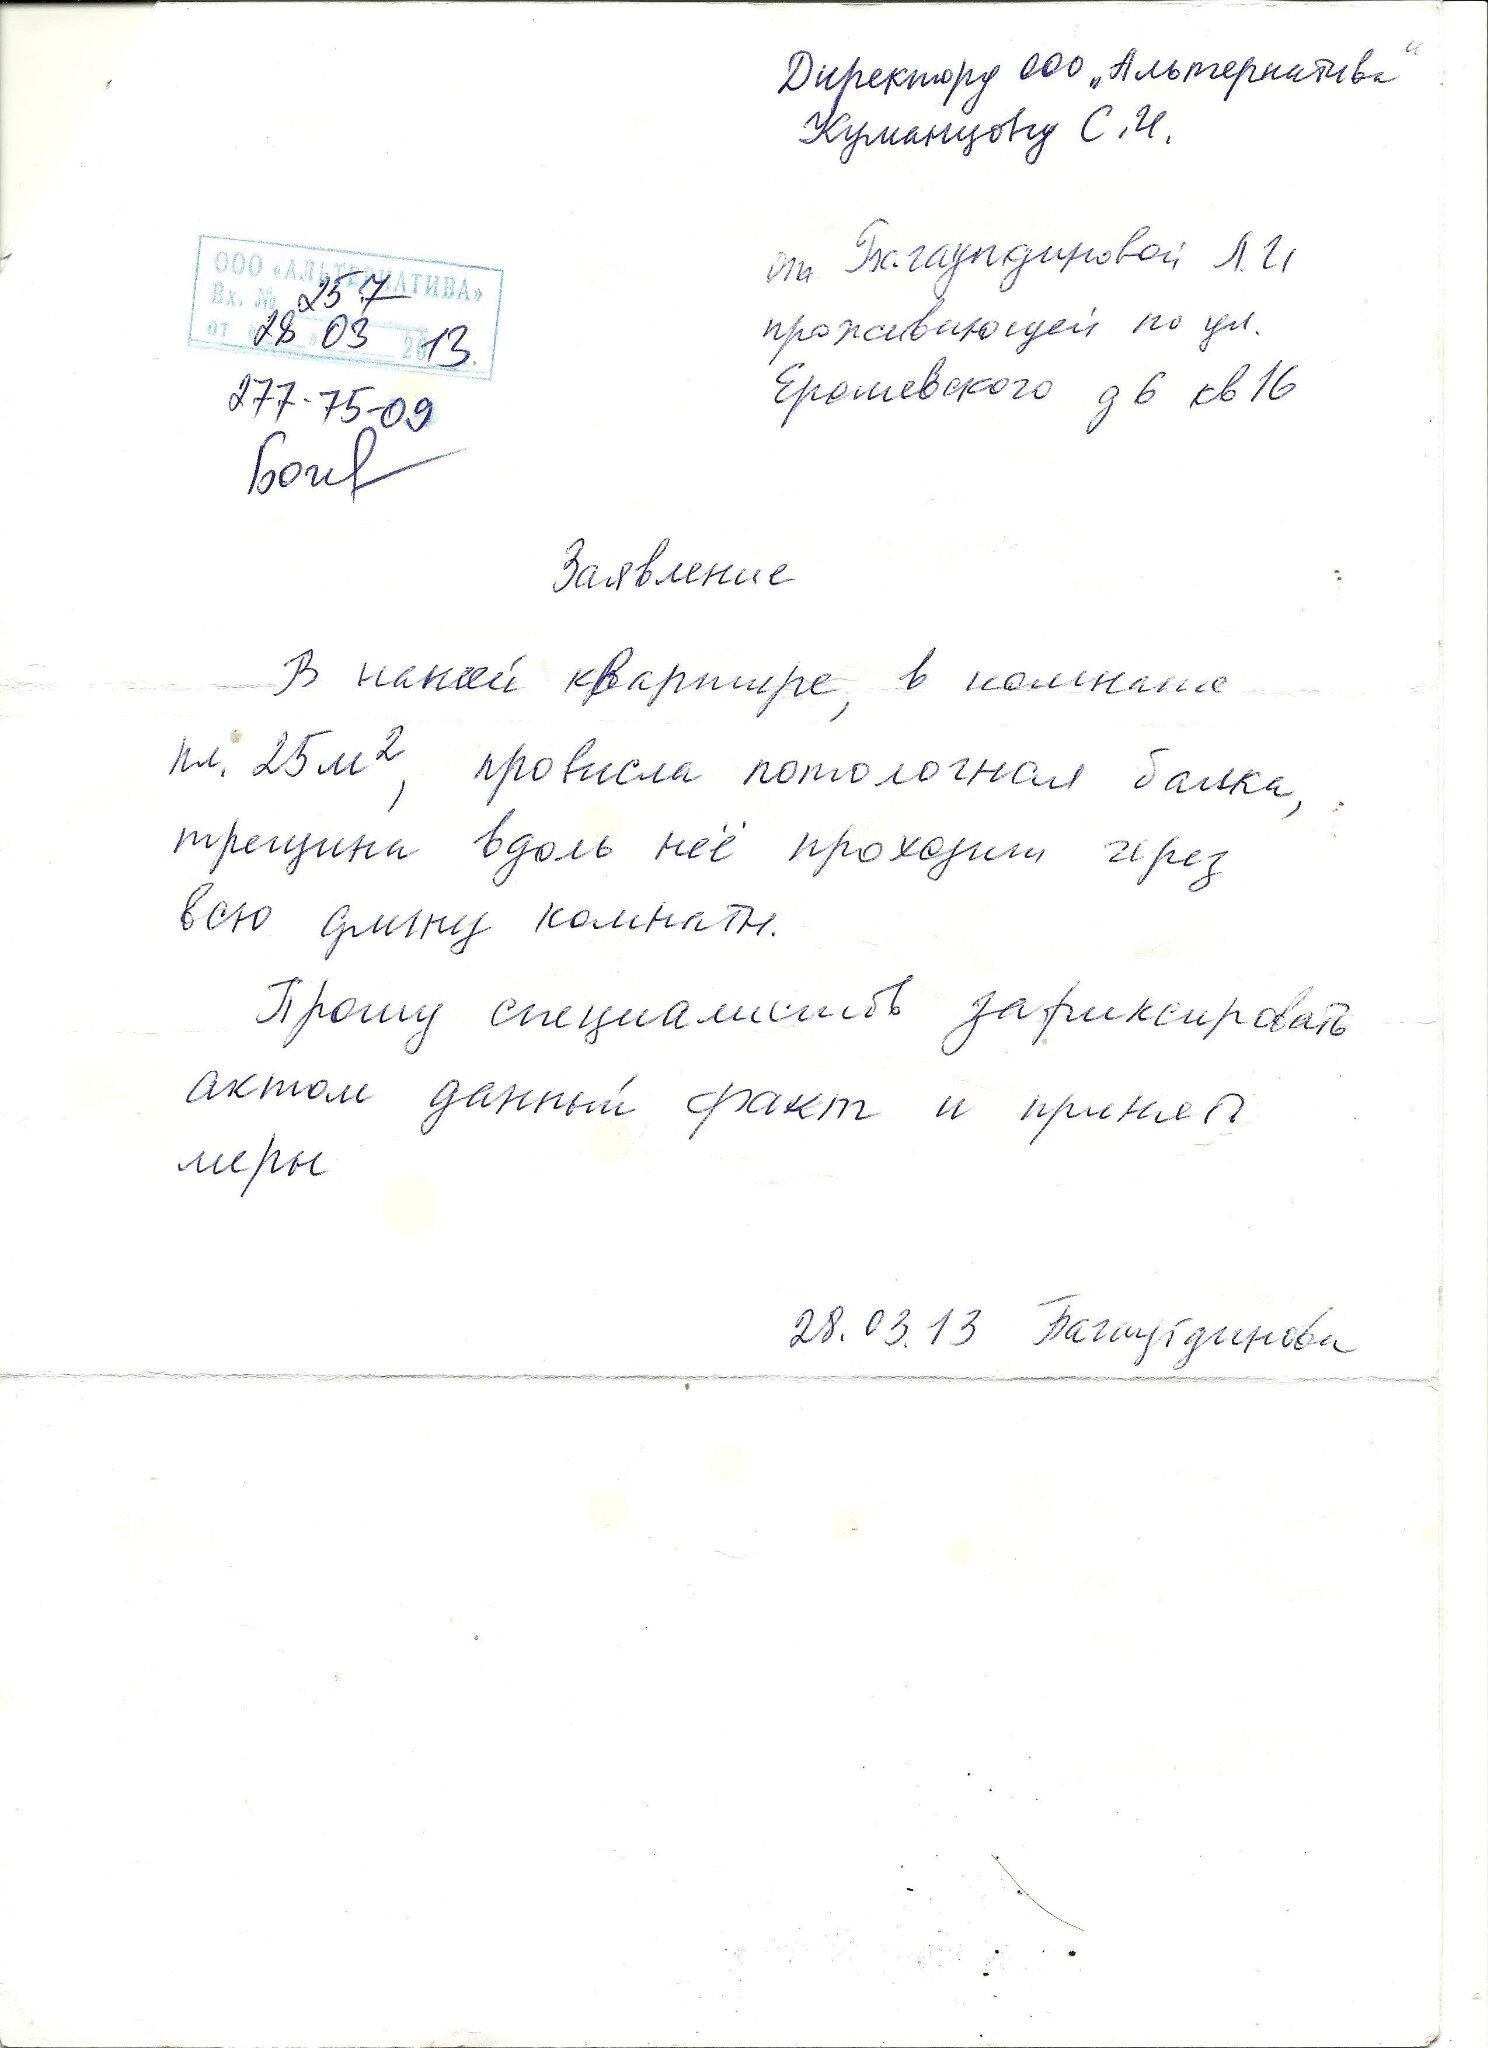 Директору ООО „Альтернатива“
Куманцову С.И.
от Багаутдиновой Л.И
проживающей по ул.
Ерошевского д 6 кв 16
ООО «АЛЬТЕРНАТИВА»
Вх. № 257
от «28» 03 2013.
277-75-09
Заявление
В нашей квартире, в комнате
пл. 25 м², провисла потолочная балка,
трещина вдоль неё проходит через
всю длину комнаты.
Прошу специалистов зафиксировать
актом данный факт и принять
меры
28.03.13 Багаутдинова